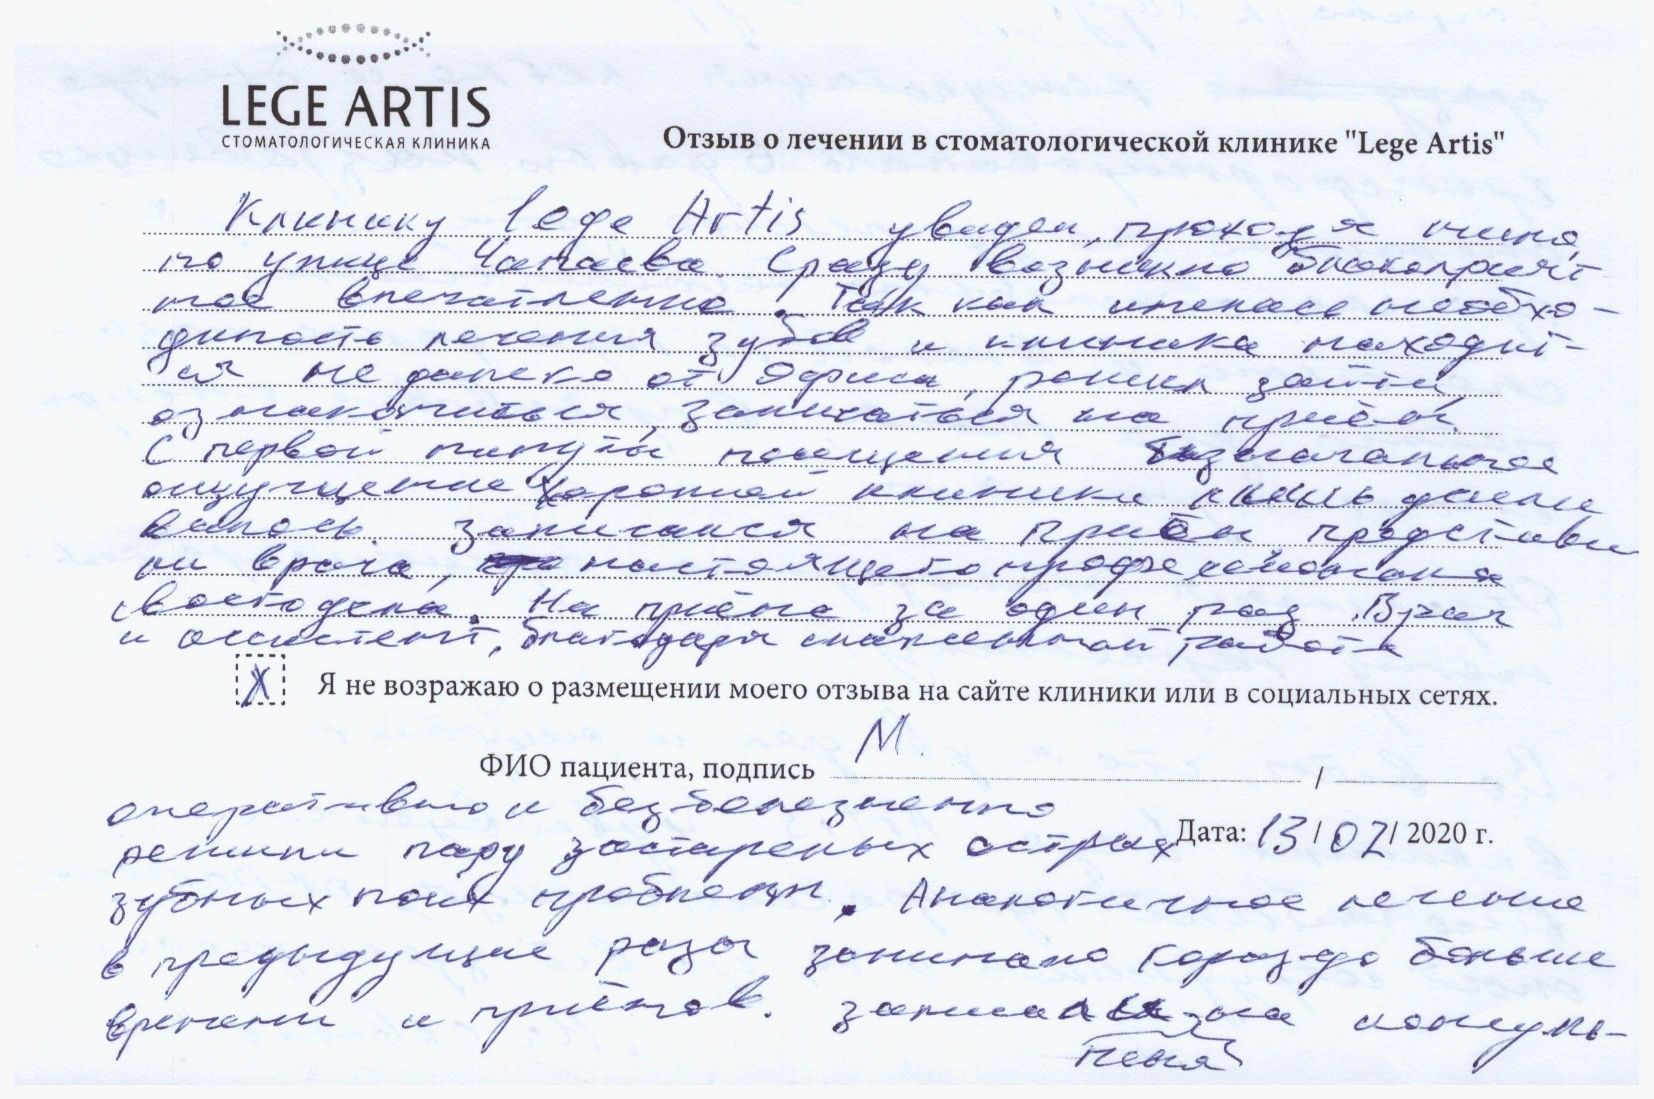 LEGE ARTIS
СТОМАТОЛОГИЧЕСКАЯ КЛИНИКА
Отзыв о лечении в стоматологической клинике "Lege Artis"
Клинику Lege Artis увидел, проходя мимо,
по улице Чапаева. Сразу возникло благоприят-
ное впечатление. Так как имелась необхо-
димость лечения зубов и клиника находит-
ся недалеко от офиса, решил зайти,
ознакомиться, записаться на приём.
С первой минуты посещения изначальное
ощущение хорошей клиники лишь
записался на приём представи
ли врача, настоящего профессионала
своего дела. На приёме за один раз Врач
и ассистент, благодаря слаженной работе
X Я не возражаю о размещении моего отзыва на сайте клиники или в социальных сетях.
М.
ФИО пациента, подпись /
оперативно и безболезненно
Дата: 13 / 02 / 2020 г.
решили пару застарелых острых
зубных проблем. Аналогичное лечение
в предыдущие разы занимало гораздо больше
времени и приёмов. записали на консуль-
меня